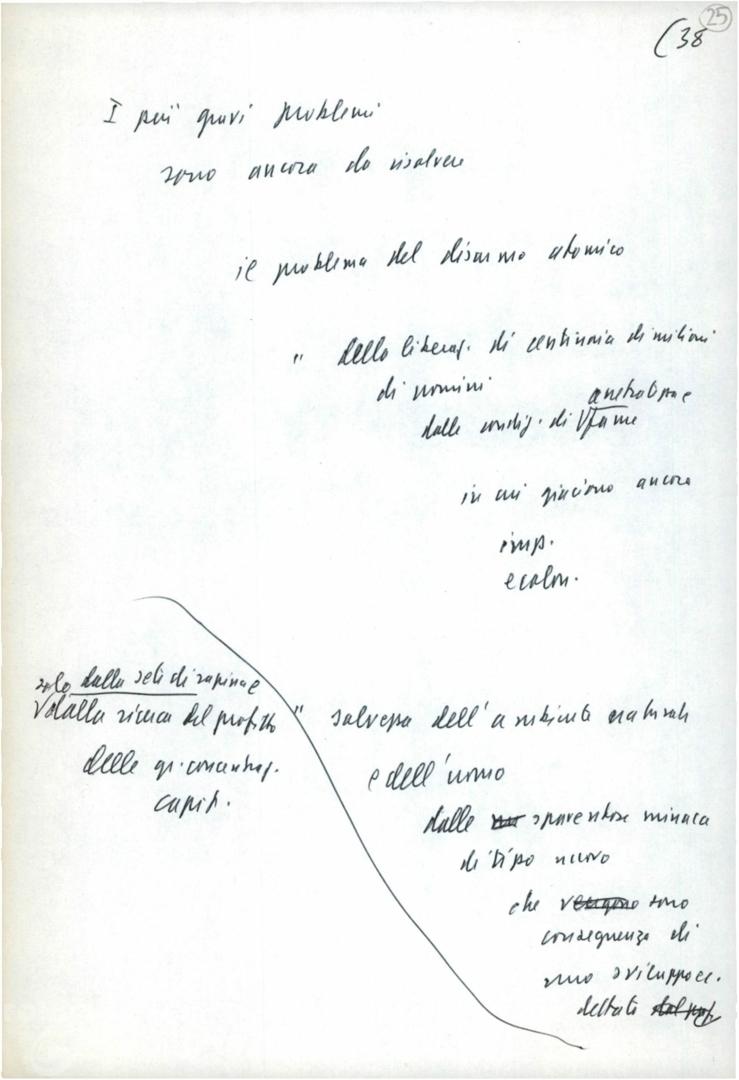 25
(38
I più gravi problemi
sono ancora da risolvere
il problema del disarmo atomico
" della liberaz. di centinaia di milioni
di uomini
arretratezza e
dalle condiz. di fame
in cui giaciono ancora
imp.
e colon.
" salvezza dell'ambiente naturale
e dell'uomo
dalle spaventose minacce
di tipo nuovo
che vengono sono
conseguenza di
uno sviluppo ec.
dettato
solo dalla sete di rapina e
dalla ricerca del profitto
delle gr. concentraz.
capit.